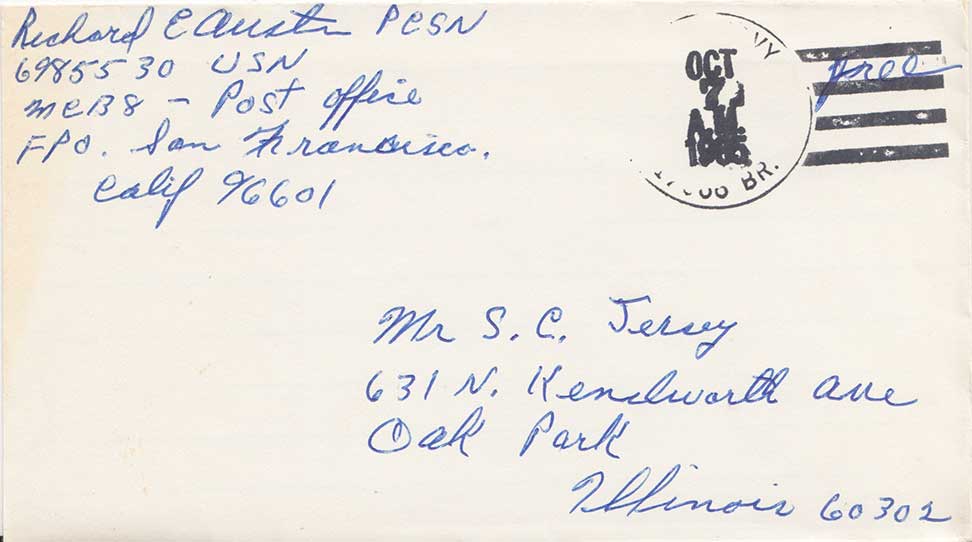 Richard E Austin PCSN
6985530 USN
MCB8 - Post office
FPO. San Francisco.
Calif 96601
OCT
7
AM
1965
BR.
free
Mr S. C. Jersey
631 N. Kenilworth Ave
Oak Park
Illinois 60302